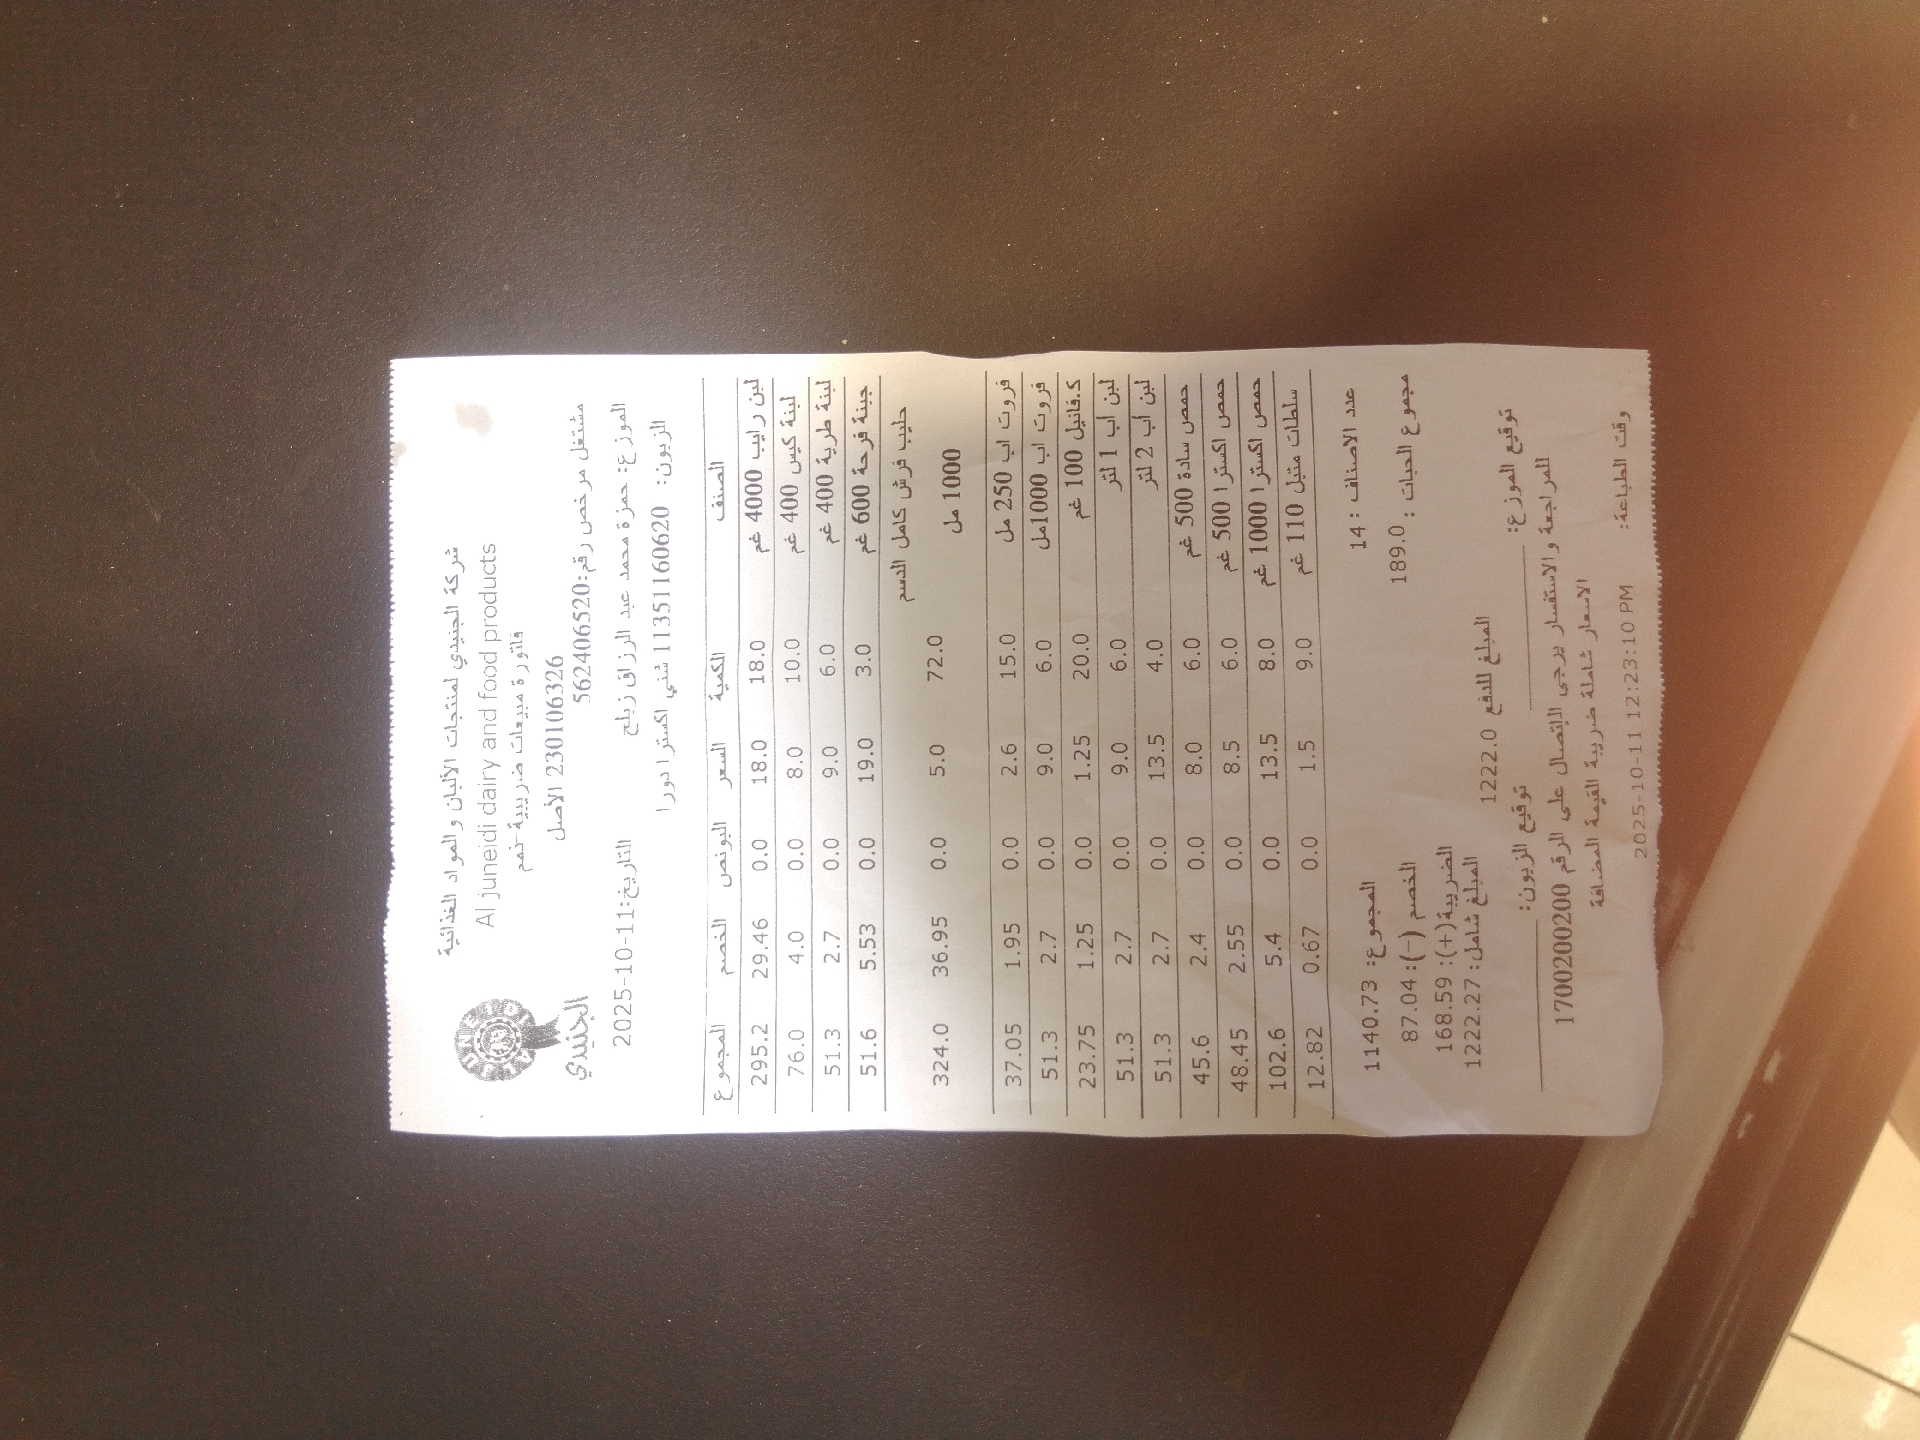 شركة الجنيدي لمنتجات الألبان والمواد الغذائية
Al juneidi dairy and food products
فاتورة مبيعات ضريبية-ذمم
230106326 الأصل
مشتغل مرخص رقم:562406520
الجنيدي
الموزع: حمزة محمد عبد الرزاق زبلح
التاريخ:2025-10-11
الزبون: 1135116062‎0 شني اكسترا دورا
الصنف الكمية السعر البونص الخصم المجموع
لبن رايب 4000 غم 18.0 18.0 0.0 29.46 295.2
لبنة كيس 400 غم 10.0 8.0 0.0 4.0 76.0
لبنة طرية 400 غم 6.0 9.0 0.0 2.7 51.3
جبنة فرحة 600 غم 3.0 19.0 0.0 5.53 51.6
حليب فرش كامل الدسم
1000 مل 72.0 5.0 0.0 36.95 324.0
فروت اب 250 مل 15.0 2.6 0.0 1.95 37.05
فروت اب 1000مل 6.0 9.0 0.0 2.7 51.3
ك.فانيل 100 غم 20.0 1.25 0.0 1.25 23.75
لبن اب 1 لتر 6.0 9.0 0.0 2.7 51.3
لبن اب 2 لتر 4.0 13.5 0.0 2.7 51.3
حمص سادة 500 غم 6.0 8.0 0.0 2.4 45.6
حمص اكسترا 500 غم 6.0 8.5 0.0 2.55 48.45
حمص اكسترا 1000 غم 8.0 13.5 0.0 5.4 102.6
سلطات متبل 110 غم 9.0 1.5 0.0 0.67 12.82
عدد الاصناف : 14 المجموع: 1140.73
مجموع الحبات : 189.0 الخصم (-): 87.04
الضريبة(+): 168.59
المبلغ شامل: 1222.27
المبلغ للدفع 1222.0
توقيع الموزع: توقيع الزبون:
للمراجعة والاستفسار يرجى الاتصال على الرقم 1700200200
الاسعار شاملة ضريبة القيمة المضافة
وقت الطباعة: 2025-10-11 12:23:10 PM